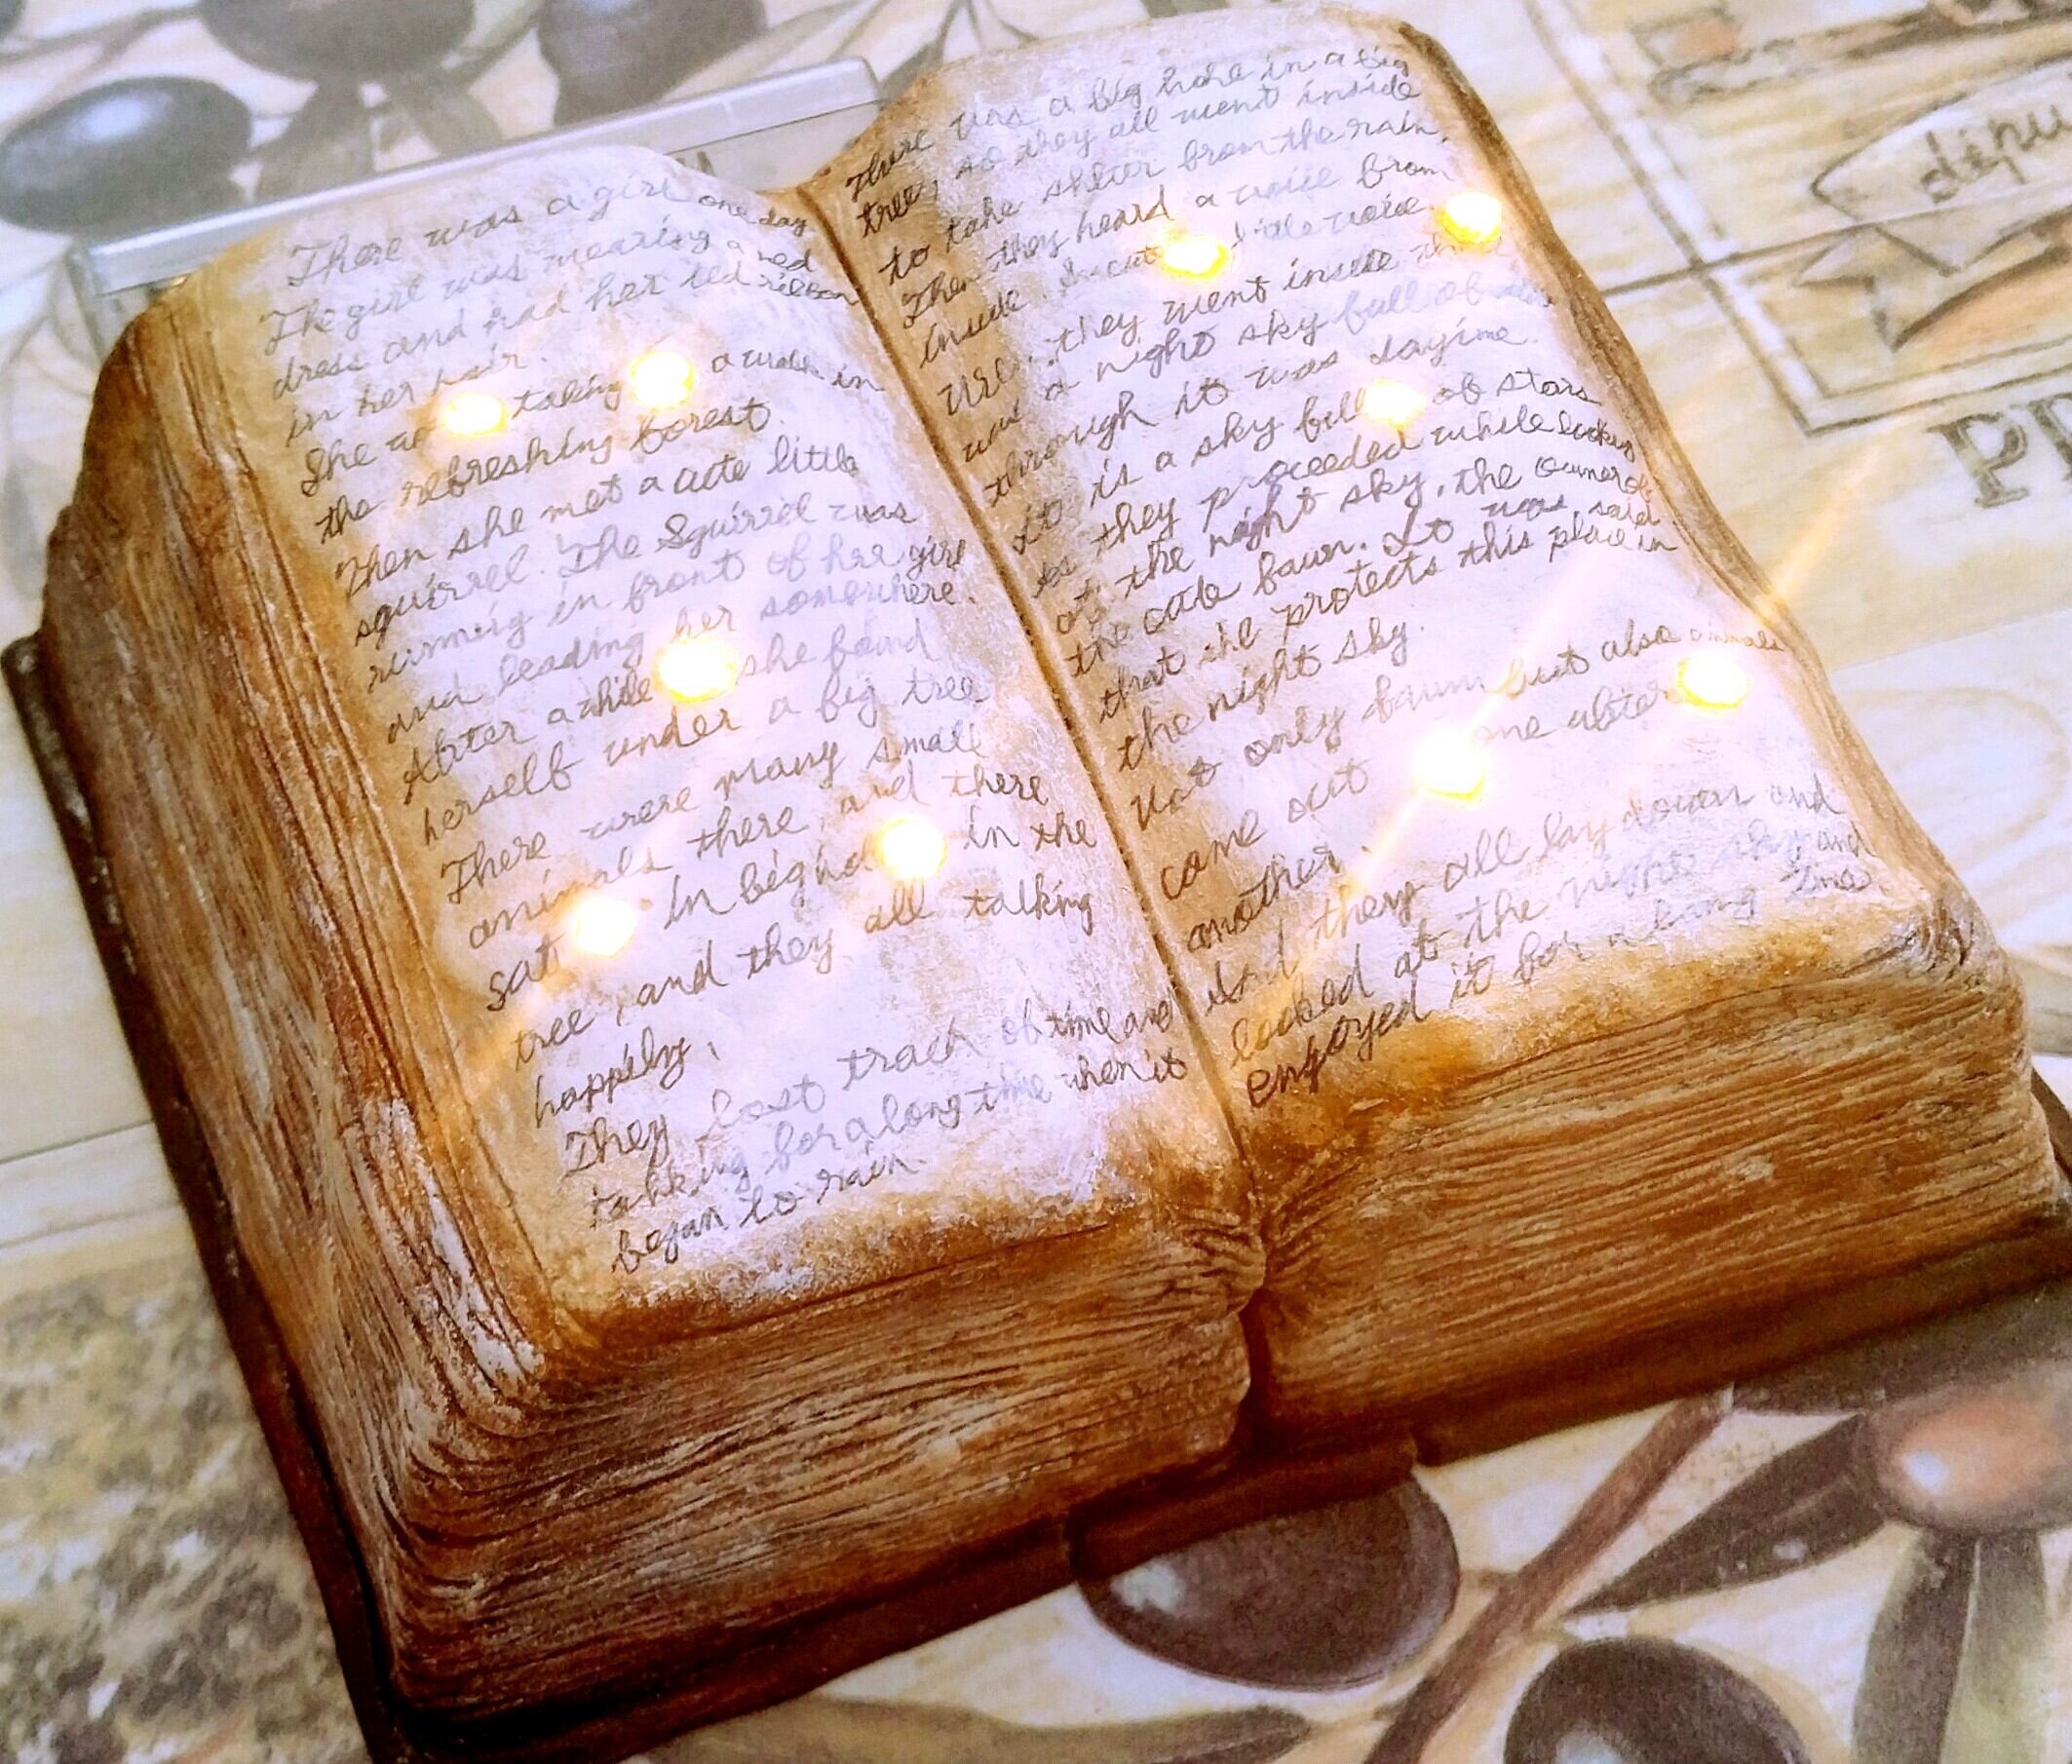 There was a girl one day
The girl was wearing a red
dress and had her red ribbon
in her hair.
She taking a walk in
the refreshing forest.
Then she met a cute little
squirrel. The Squirrel was
running in front of her girl
and leading her somewhere.
After a while she found
herself under a big tree
There were many small
animals there, and there
sat. In big in the
tree, and they all talking
happily.
They lost track of time and
talking for a long time when it
began to rain.
There was a big hole in a big
tree, so they all went inside
to take shelter from the rain.
Then they heard a voice from
inside. little voice.
they went inside
a night sky full of
through it was dayime.
It is a sky full of stars
As they proceeded while looking
at the night sky, the owner of
the cute fawn. It was said
that she protects this place in
the night sky.
Not only fawn but also animals
came out one after
another.
And they all lay down and
looked at the night sky and
enjoyed it for a long time.
dépu